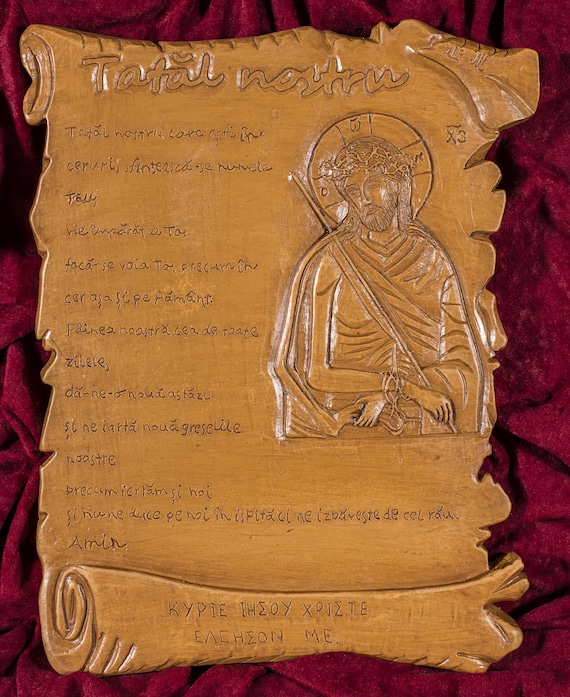 Tatăl nostru
IC
XC
Tatăl nostru care ești în
ceruri, sfințească-se numele
Tău,
vie împărăția Ta,
facă-se voia Ta, precum în
cer așa și pe Pământ.
Pâinea noastră cea de toate
zilele,
dă-ne-o nouă astăzi
și ne iartă nouă greșelile
noastre
precum iertăm și noi
și nu ne duce pe noi în ispită ci ne izbăvește de cel rău.
Amin
ΚΥΡΙΕ ΙΗΣΟΥ ΧΡΙΣΤΕ
ΕΛΕΗΣΟΝ ΜΕ.